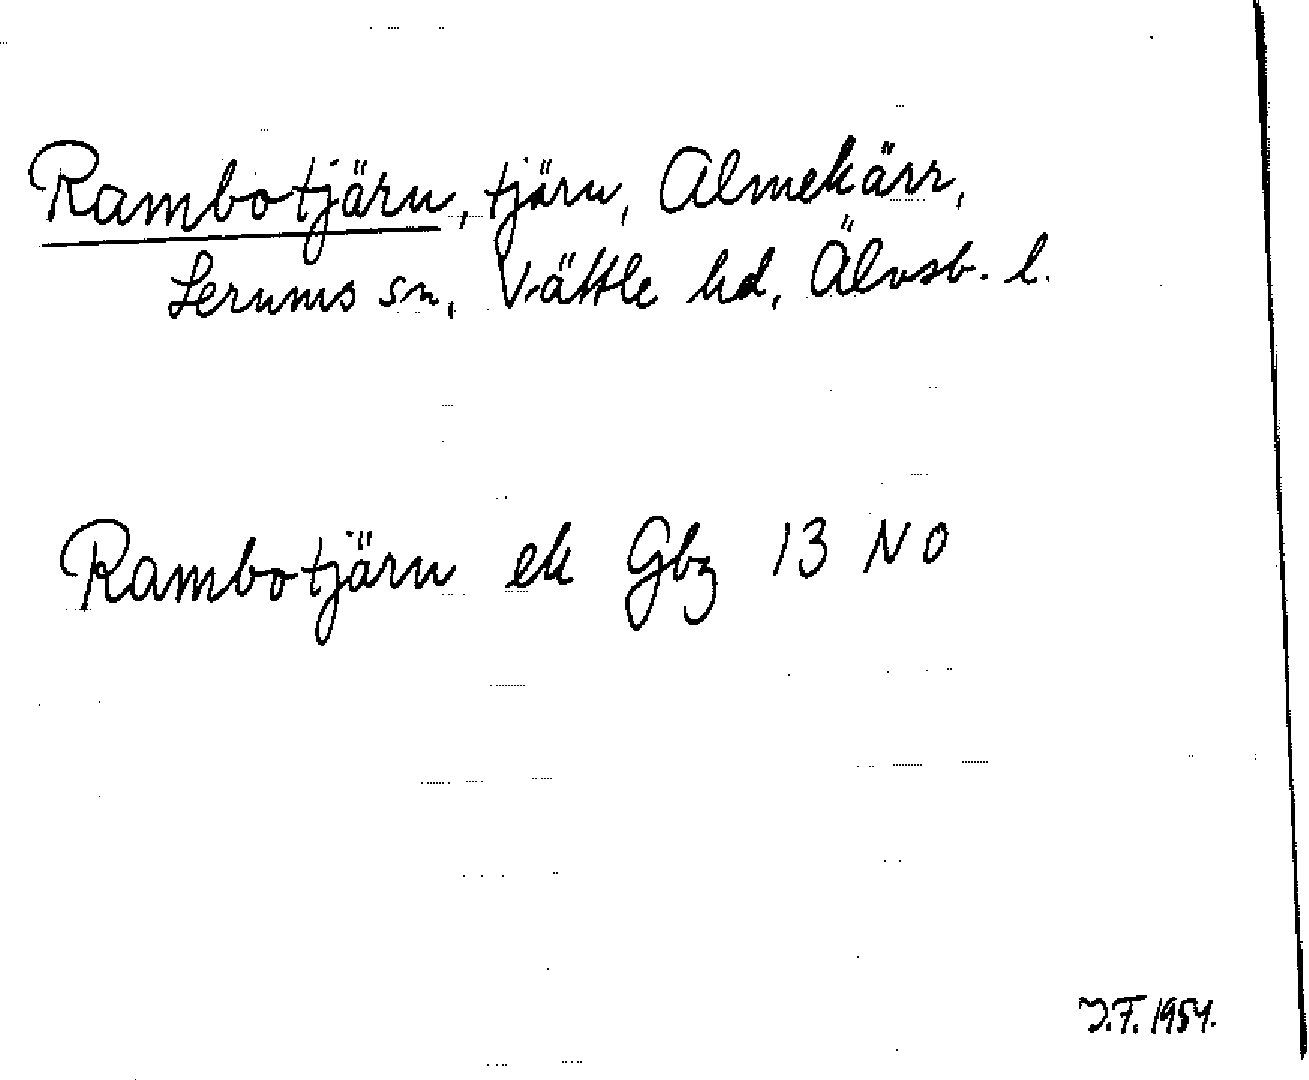 Rambotjärn, tjärn, Almekärr,
Lerums sn, Vättle hd, Älvsb. l.
Rambotjärn ek Gbg 13 NO
J.F. 1954.